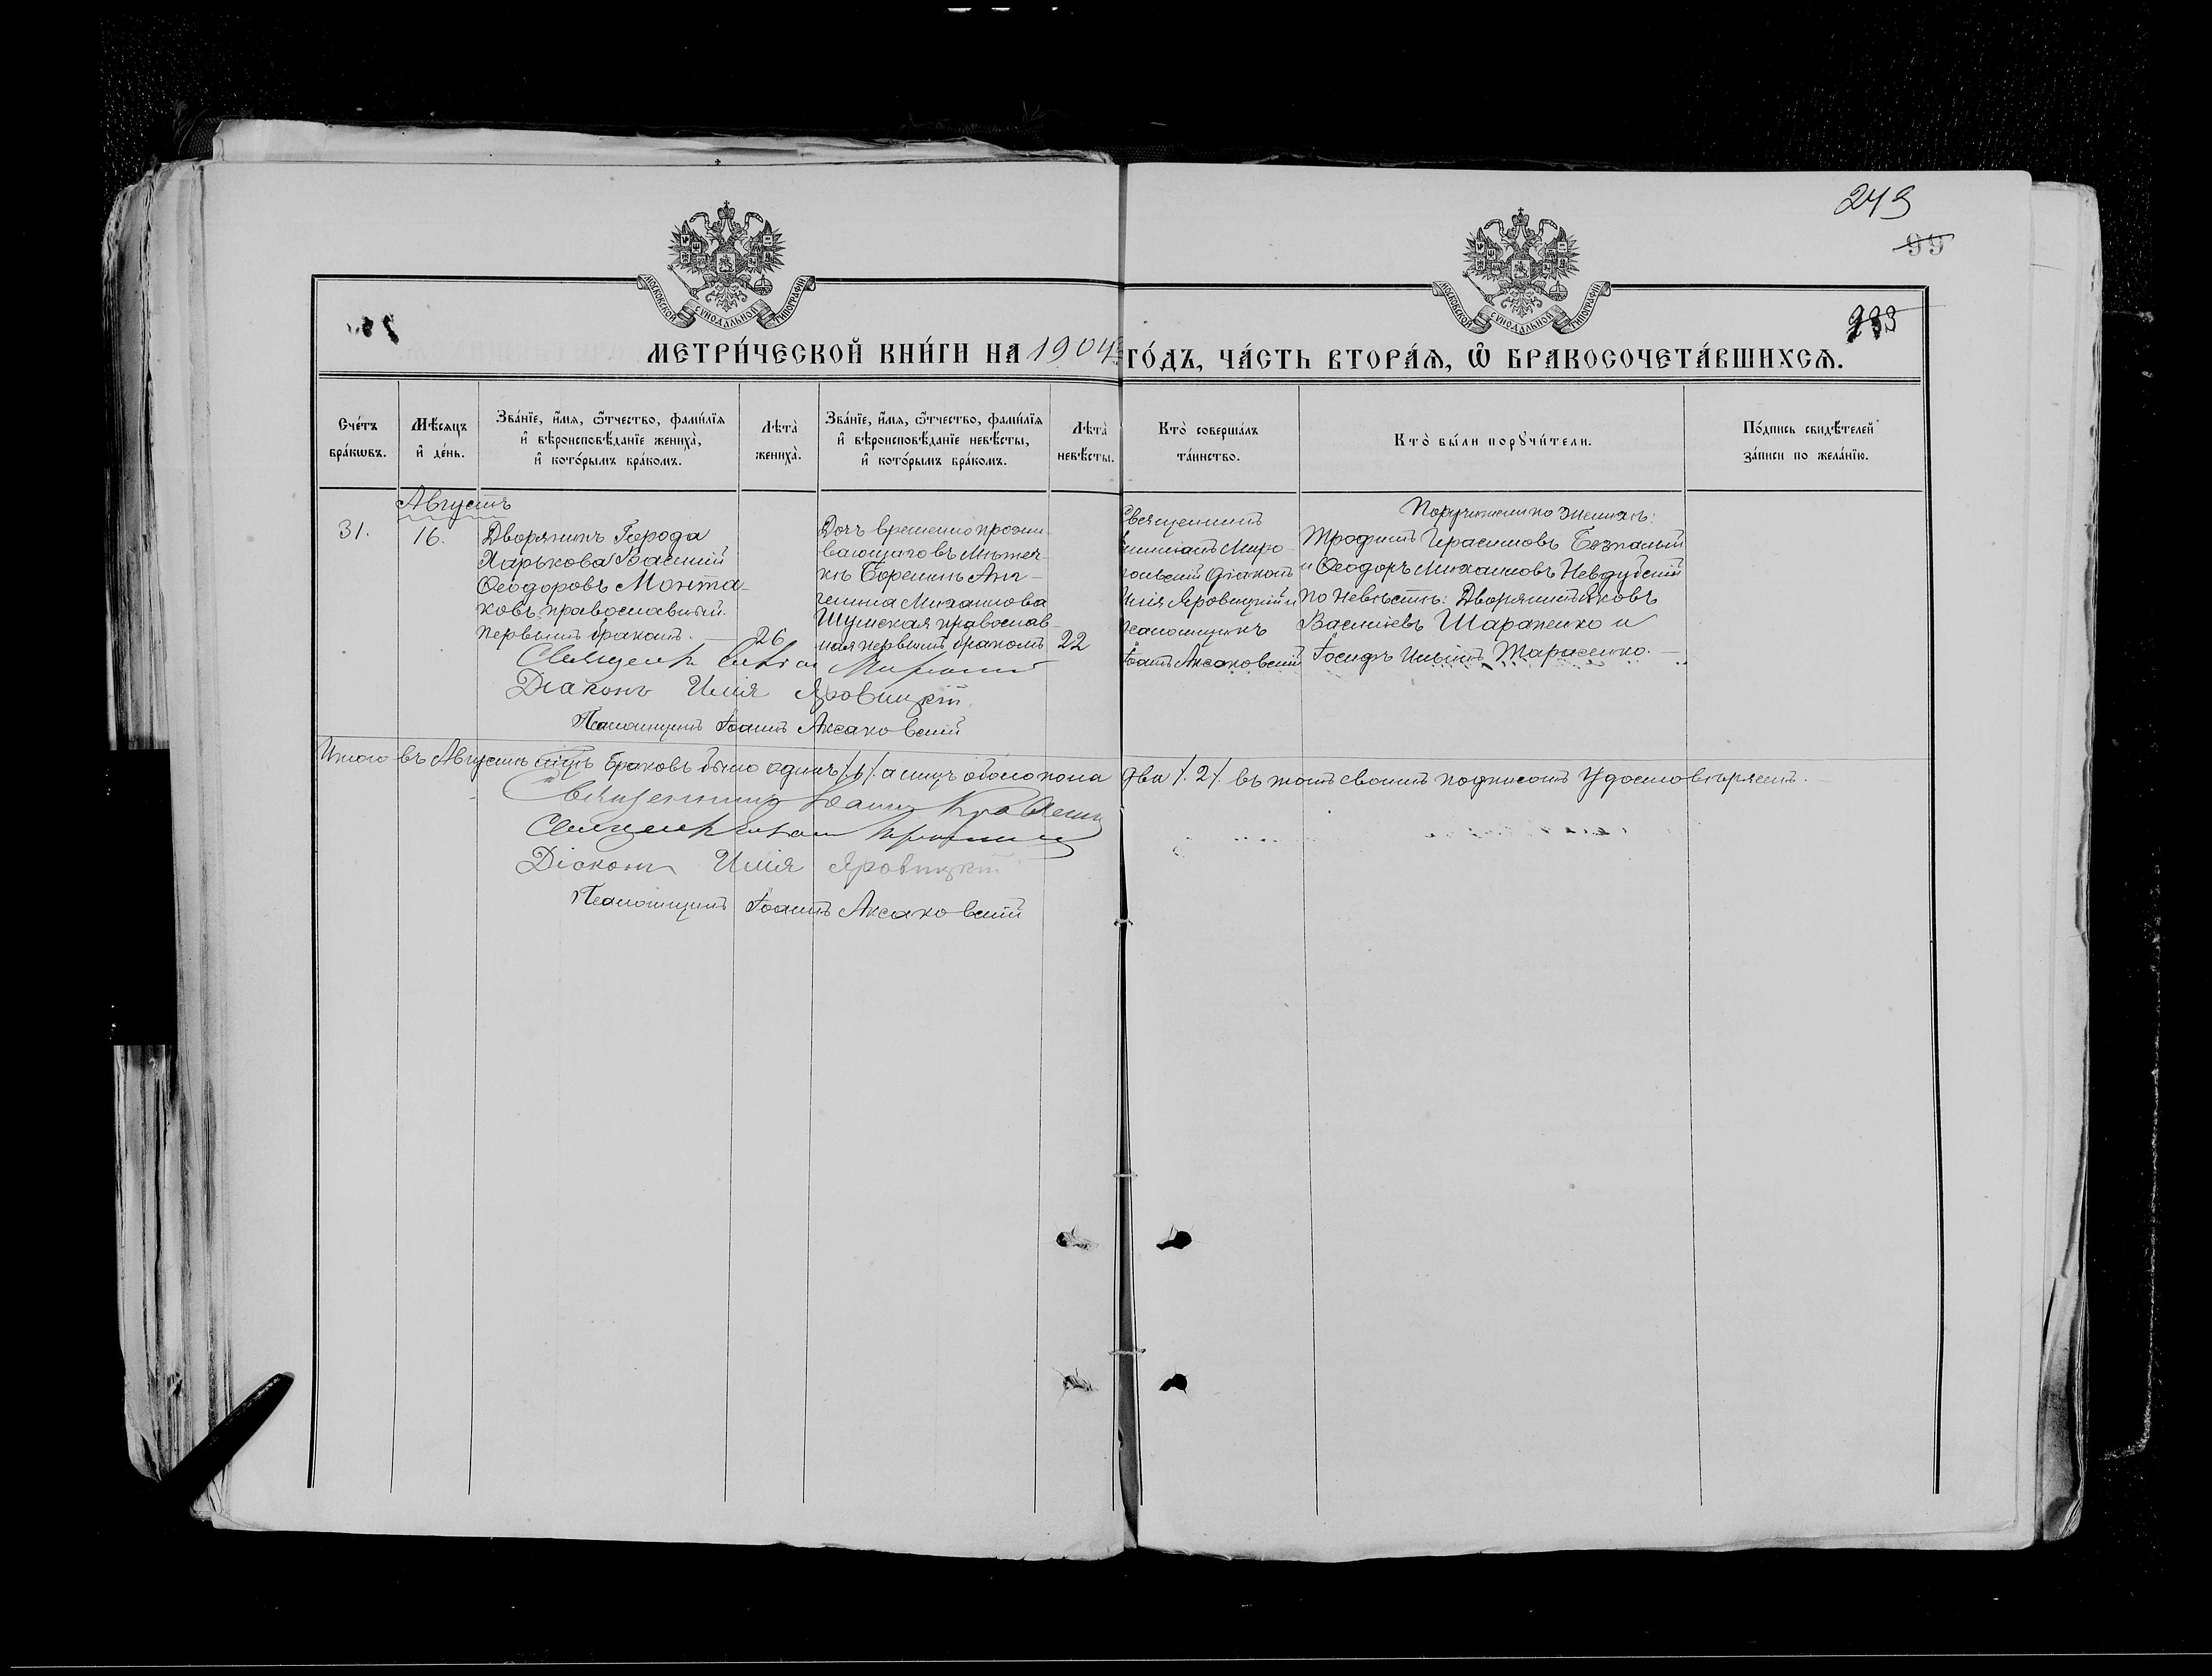 249
99
МОСКОВСКОЙ СѴНОДАЛЬНОЙ ТИПОГРАФІИ
МОСКОВСКОЙ СѴНОДАЛЬНОЙ ТИПОГРАФІИ
МЕТРИ́ЧЕСКОЙ КНИ́ГИ НА 1904 ГО́ДЪ, ЧА́СТЬ ВТОРА́Ѧ, Ѽ БРАКОСОЧЕТА́ВШИХСѦ.
Сче́тъ
бра́кѡвъ.
Мѣ́сѧцъ
и҆ де́нь.
Зва́нїе, и҆́мѧ, ѻ҆́тчество, фами́лїѧ
и҆ вѣроисповѣ́данїе жениха̀,
и҆ кото́рымъ бра́комъ.
Лѣта̀
жениха̀.
Зва́нїе, и҆́мѧ, ѻ҆́тчество, фами́лїѧ
и҆ вѣроисповѣ́данїе невѣ́сты,
и҆ кото́рымъ бра́комъ.
Лѣта̀
невѣ́сты.
Кто̀ соверша́лъ
та́инство.
Кто̀ бы́ли порꙋчи́тели.
По́дпись свидѣ́телей
за́писи по жела́нїю.
Августъ
31.
16.
Дворянинъ Города
Харькова Василій
Ѳеодоровъ Монта-
ковъ православный
первымъ бракомъ.
26
Дочь временно прожи-
вающаго въ Мѣстеч-
кѣ Боремлѣ Ан-
Михаилова
Шумская православ-
ная первымъ бракомъ
22
Священникъ
Миро-
польскій Діаконъ
Илія Яровицкій и
псаломщикъ
Іоаннъ Аксаковскій
Поручители по женихѣ:
Трофимъ Герасимовъ Безпалый
и Ѳеодоръ Михаиловъ Невдубскій
по Невѣстѣ: Дворянинъ Яковъ
Васильевъ Шарапенко и
Іосифъ Ильинъ Тарасенко.
Діаконъ Илія Яровицкій.
Псаломщикъ Іоаннъ Аксаковскій
Итого въ Августѣ мцѣ браковъ было одинъ /1/ а лицъ обоего пола два /2/. въ томъ своимъ подписомъ удостовѣряемъ.
Священникъ Іоаннъ
Діаконъ Илія Яровицкій
Псаломщикъ Іоаннъ Аксаковскій